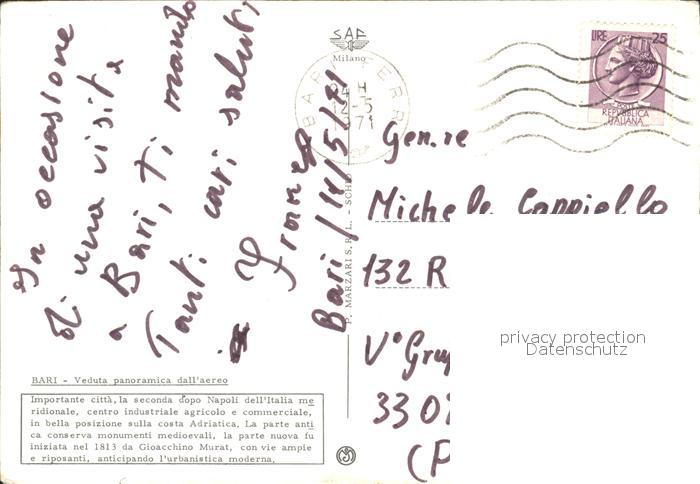 In occasione
di una visita
a Bari, ti mando
Tanti cari saluti
Franco
Bari/14/5/71
BARI - Veduta panoramica dall'aereo
Importante città, la seconda dopo Napoli dell'Italia me
ridionale, centro industriale agricolo e commerciale,
in bella posizione sulla costa Adriatica. La parte anti
ca conserva monumenti medioevali, la parte nuova fu
iniziata nel 1813 da Gioacchino Murat, con vie ampie
e riposanti, anticipando l'urbanistica moderna.
SAF
Milano
P. MARZARI S.R.L. - SCHIO
BARI FERR
71
LIRE 25
POSTE
REPUBBLICA
ITALIANA
Gen.re
Michele Cappiello
132 R
V° Gru
330
(P
privacy protection
Datenschutz